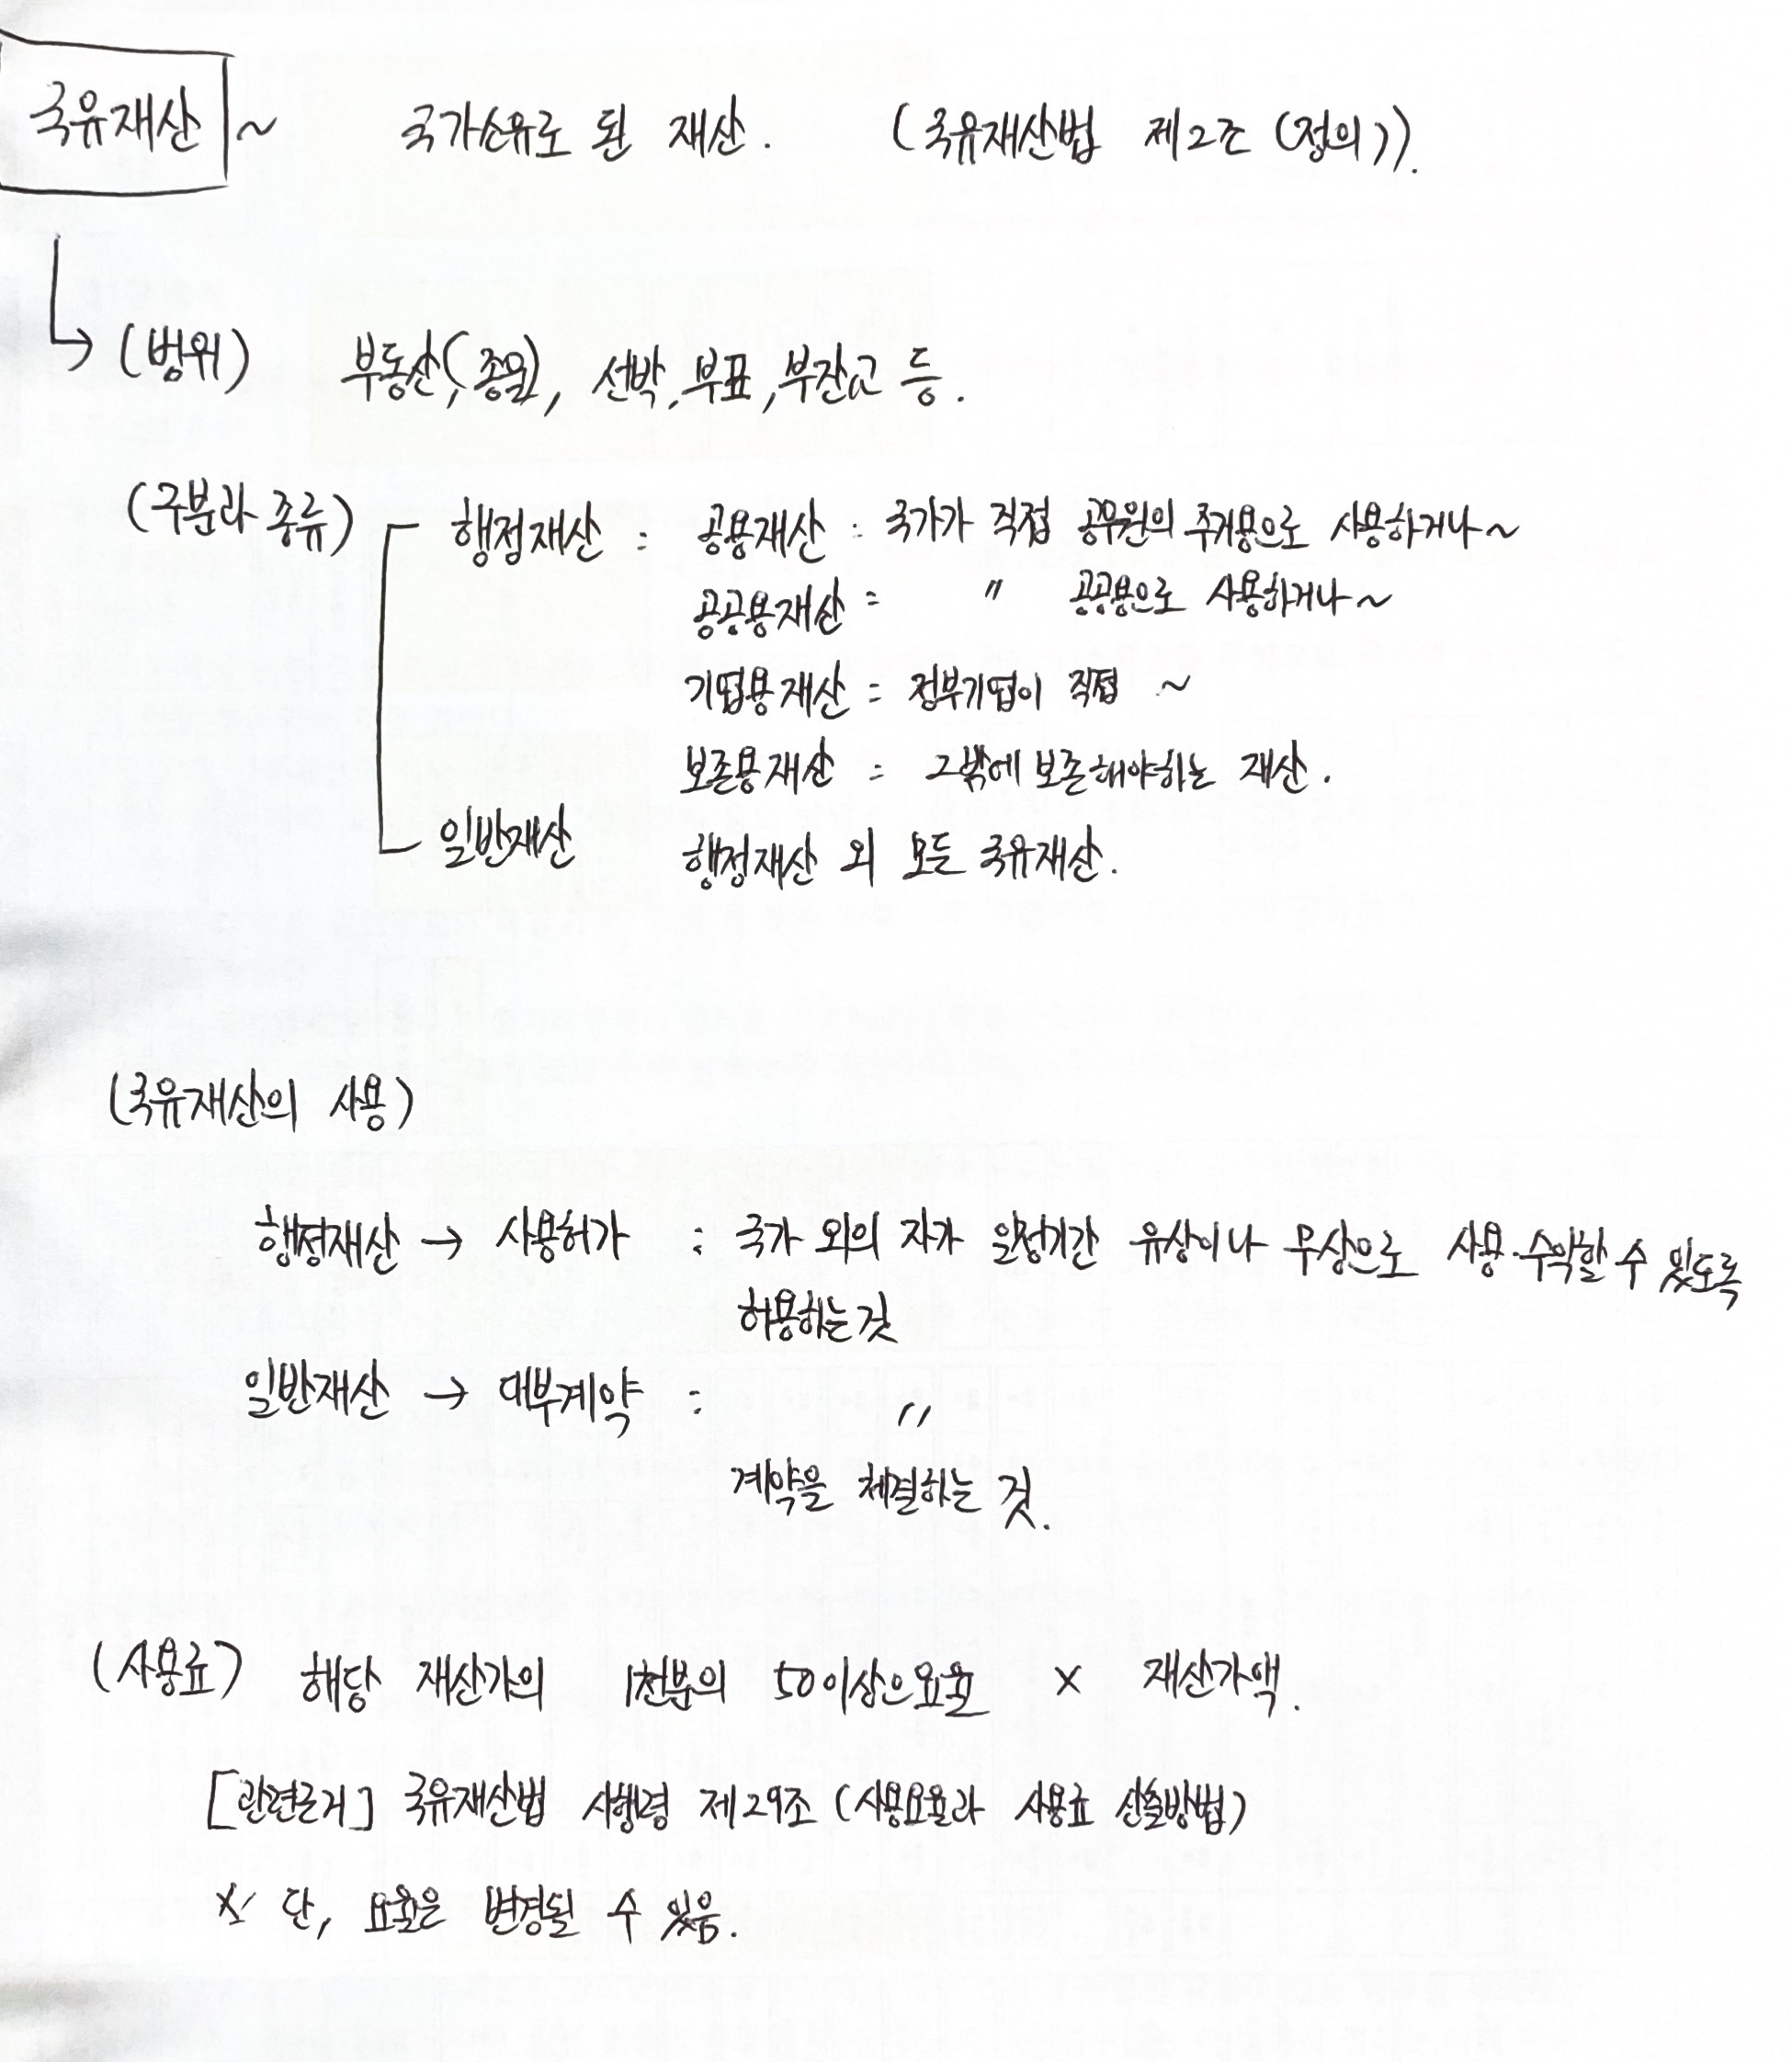 국유재산 ~ 국가소유로 된 재산. (국유재산법 제2조 (정의)).
→ (범위) 부동산(, 종물), 선박, 부표, 부잔교 등.
(구분과 종류) 행정재산 : 공용재산 : 국가가 직접 공무원의 주거용으로 사용하거나 ~
공공용재산 : 〃 공공용으로 사용하거나 ~
기업용재산 : 정부기업이 직접 ~
보존용재산 : 그밖에 보존해야하는 재산.
일반재산 행정재산 외 모든 국유재산.
(국유재산의 사용)
행정재산 → 사용허가 : 국가 외의 자가 일정기간 유상이나 무상으로 사용·수익할 수 있도록
허용하는것
일반재산 → 대부계약 : 〃
계약을 체결하는 것.
(사용료) 해당 재산가의 1천분의 50이상으요율 × 재산가액.
[관련근거] 국유재산법 시행령 제29조 (사용요율과 사용료 산출방법)
※ 단, 요율은 변경될 수 있음.